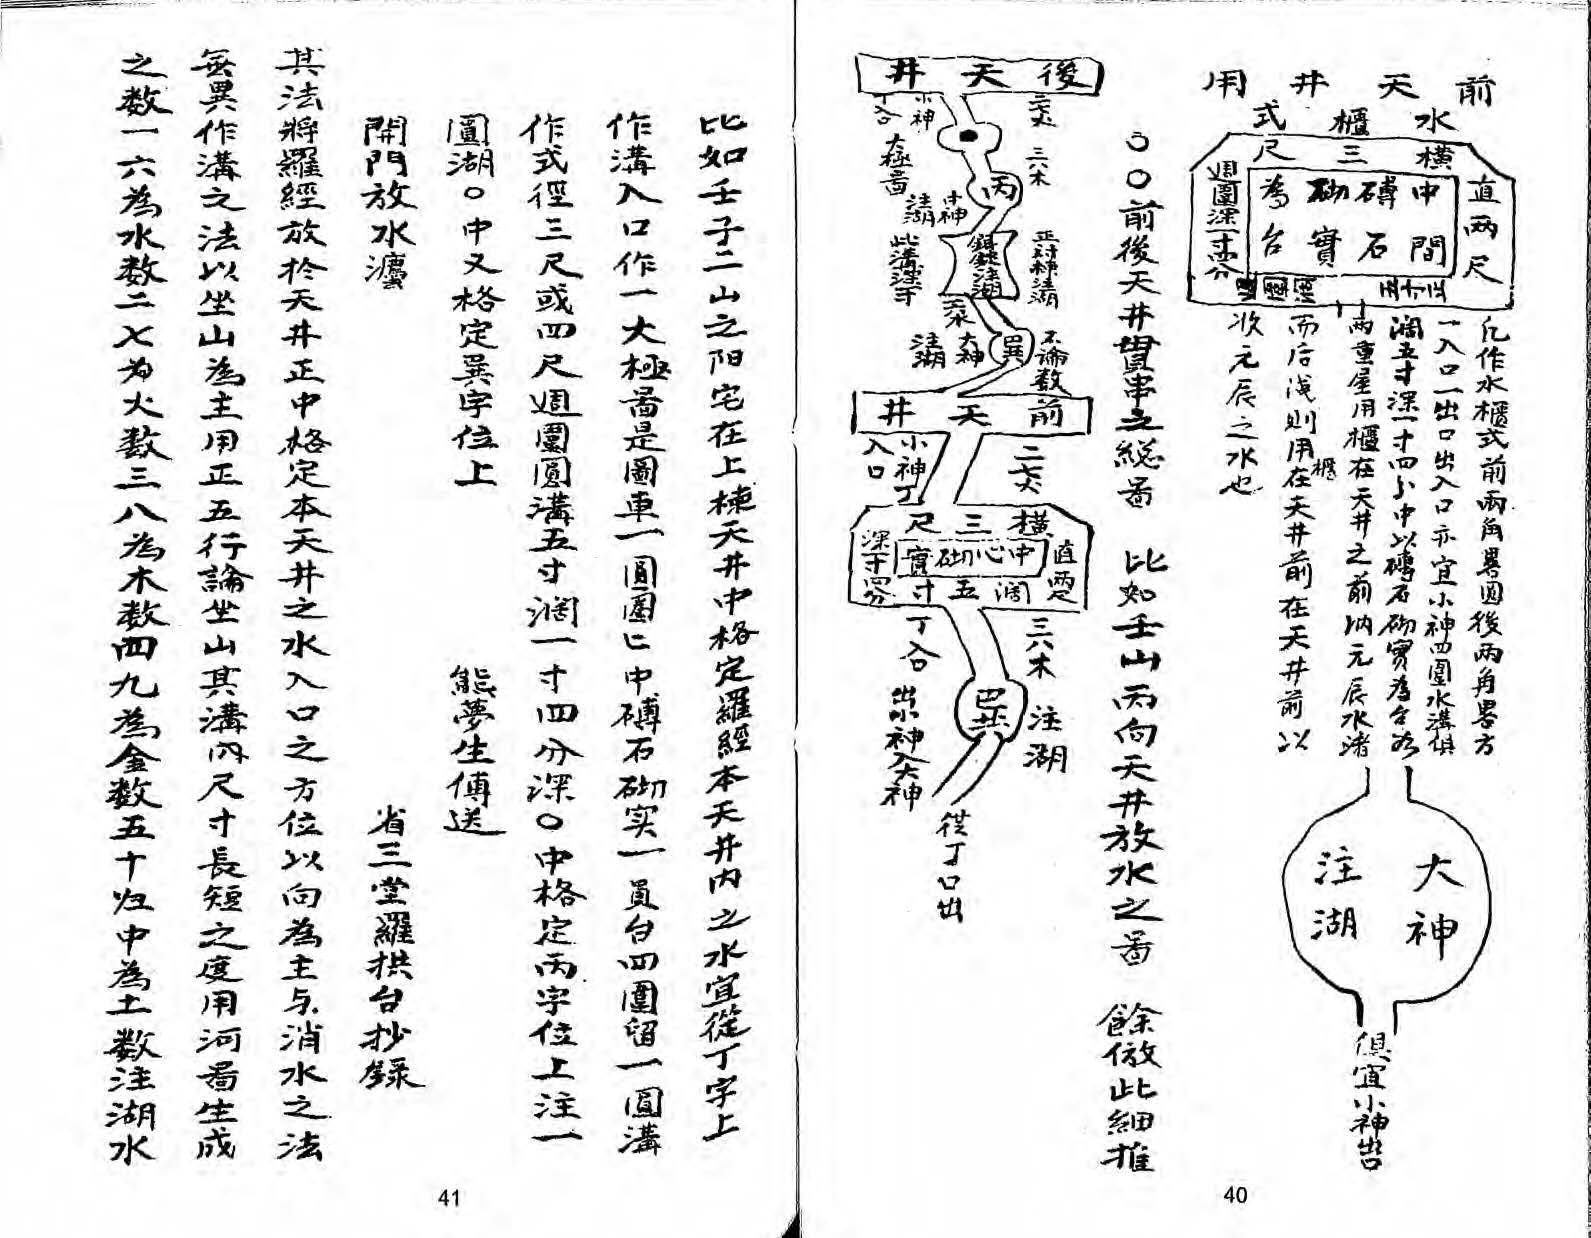 前天井用
水櫃式
橫三尺
直兩尺
週圍深一寸四分
中間
磚石
砌實
為台
凢作水櫃式前兩角畧圓後兩角畧方
一入口一出口出入口亦宜小神四圍水溝俱
濶五寸深一寸四分中以磚石砌實為台形
兩重屋用櫃在天井之前納元辰水渚
而后淺則用櫃在天井前在天井前以
收元辰之水也
大神
注湖
俱宜小神出口
○○前後天井貫串之総啚
比如壬山丙向天井放水之啚
餘倣此細推
後天井
二七火
小神
丁入口
三六木
太極啚
丙
小神
注湖
正對神注湖
此溝深寸
不論数
巽
大神
注湖
前天井
二七火
小神丁
入口
橫三尺
直兩尺
中心砌實
深一寸四分
濶五寸
三六木
丁入口
巴
注湖
出小神入大神
從丁口出
40
比如壬子二山之阳宅在上棟天井中格定羅經本天井内之水宜從丁字上
作溝入口作一大極啚是圖車一圓圈匕中磚石砌实一員台四圍留一圓溝
作式徑三尺或四尺週圍圓溝五寸濶一寸四分深○中格定丙字位上注一
圓湖○中又格定巽字位上
熊夢生傳送
開門放水灋
省三堂羅拱台抄錄
其法將羅經放於天井正中格定本天井之水入口之方位以向為主与消水之法
無異作溝之法以坐山為主用正五行論坐山其溝内尺寸長短之度用河啚生成
之数一六為水数二七为火数三八為木数四九為金数五十归中為土数注湖水
41